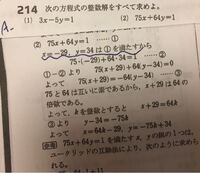 214 次の方程式の整数解をすべて求めよ。
(1) 3x-5y=1 (2) 75x+64y=1
A.
(2) 75x+64y=1 ……①
x=-29, y=34は①を満たすから
75・(-29)+64・34=1 ……②
①-②より 75(x+29)+64(y-34)=0
よって 75(x+29)=-64(y-34) ……③
75と64は互いに素であるから，x+29は64の
倍数である。
よって，kを整数とすると x+29=64k
③より y-34=-75k
よって x=64k-29, y=-75k+34
ユークリッドの互除法により，次のように求めら
れる。